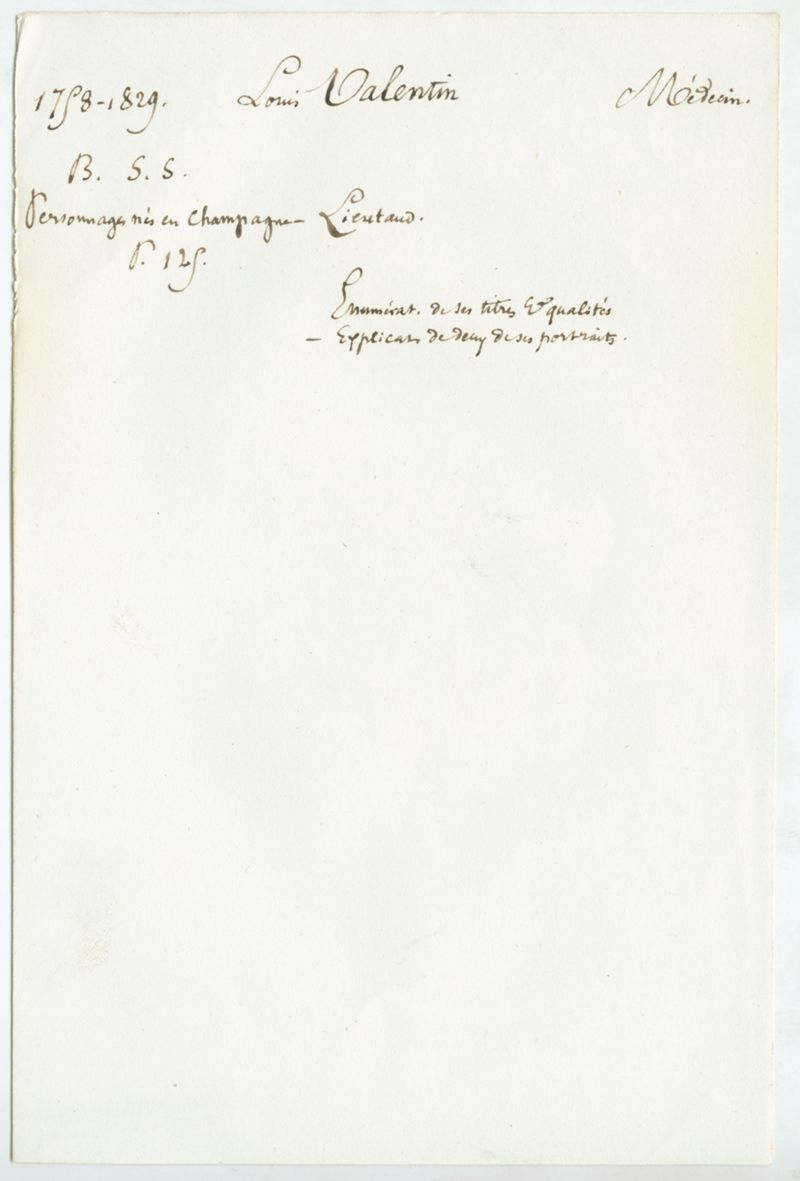 1758-1829. Louis Valentin Médecin.
B. S. S.
Personnages nés en Champagne - Lieutaud.
P. 125.
Enumérat. de ses titres & qualités
- Explicat. de deux de ses portraits.